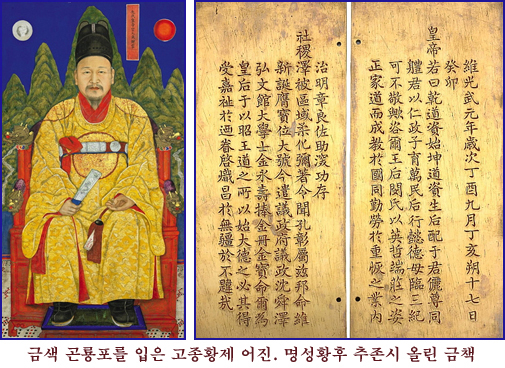 維光武元年歲次丁酉九月丁亥朔十七日
癸卯
皇帝若曰乾道資始坤道資生后配于君儷尊同
軆君以仁政子育萬民后行懿德母臨三紀
可不敬歟咨爾王后閔氏以英哲端莊之姿
正家道而成敎於國同勤勞於重恢之業內
治明章良佐助浚功存
社稷澤被區域化彌著令聞孔彰屬玆邦命維
新誕膺寶位大號今遣議政府議政沈舜澤
弘文館大學士金永壽捧金冊金寶命爾爲
皇后于以昭王道之所以始大德之必其得
受嘉祉於迓眷啓熾昌於無疆於不韙哉
금색 곤룡포를 입은 고종황제 어진. 명성황후 추존시 올린 금책